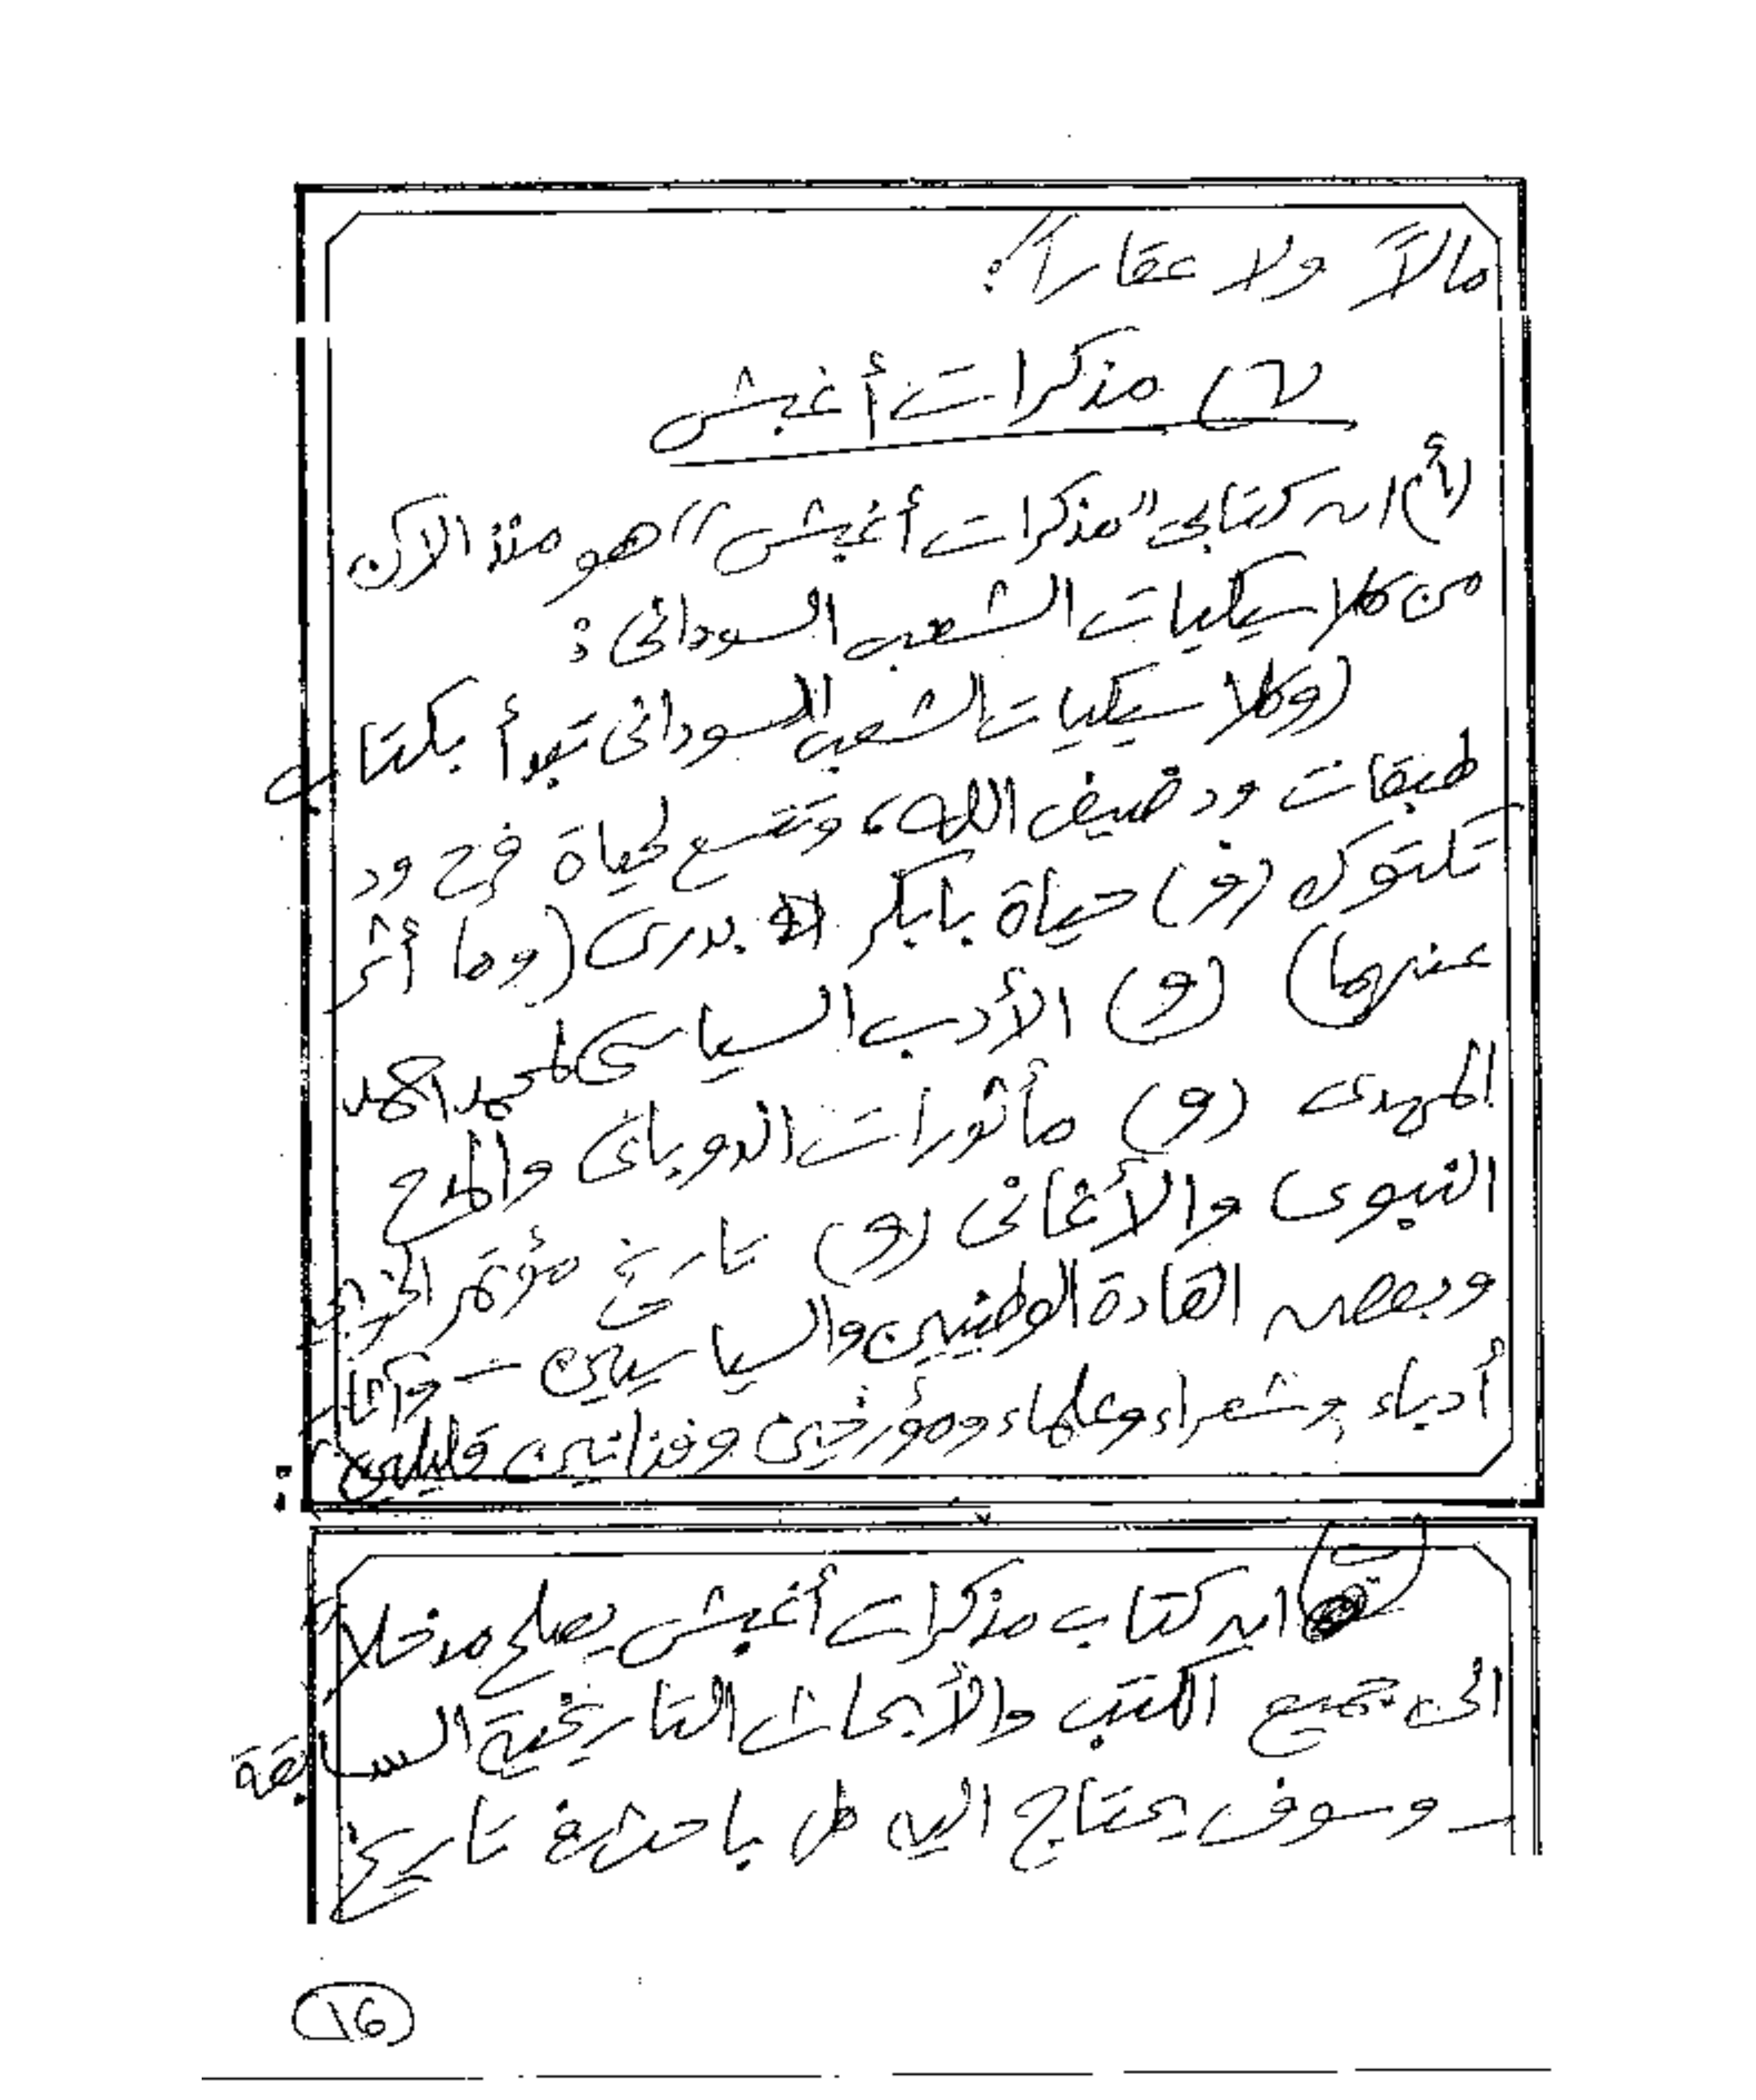 مالاً ولا عقارا.
(٦) مذكرات أغبش
(أ) ان كتابى "مذكرات أغبش" هو منذ الآن
من كلاسيكيات الشعب السودانى :
(وكلاسيكيات الشعب السودانى تبدأ بكتاب
طبقات ود ضيف الله، وتتسع لحياة فرح ود
تكتوك (و) حياة بابكر بدرى (وما أثر
عنهما) (و) الأدب السياسى لمحمد احمد
المهدى (و) مأثورات الدوباى والمدح
النبوى والأغانى (و) تاريخ مؤتمر الخريجين
وبعض القادة الوطنيين والسياسيين – وآثار
أدباء وشعراء وعلماء ومؤرخين وفنانين قليلين)
:
(ب) ان كتاب مذكرات أغبش يصلح مدخلاً
الى جميع الكتب والأبحاث التاريخية السابقة
– وسوف يحتاج اليه كل باحث فى تاريخ
16